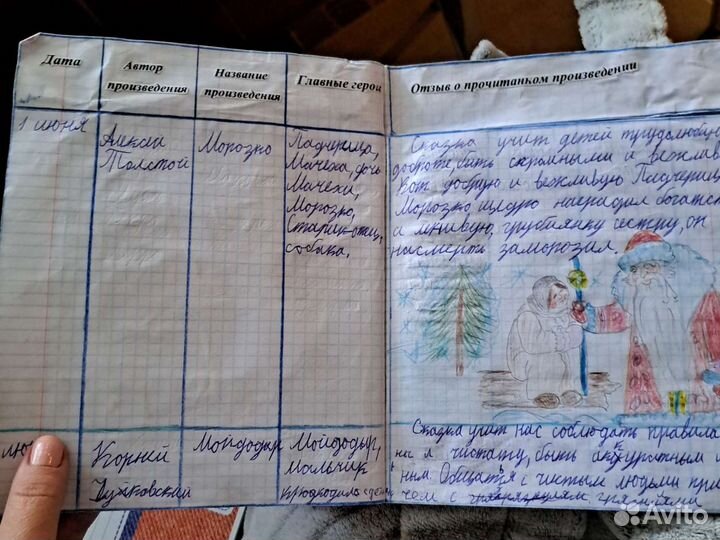 Дата
Автор произведения
Название произведения
Главные герои
Отзыв о прочитанком произведении
1 июня
Алексей
Толстой
Морозко
Падчерица,
Мачеха, дочь
Мачехи,
Морозко,
Старик-отец,
собака.
Сказка учит детей трудолюбию
доброте, быть скромными и вежлив
Вот добрую и вежливую Падчериц
Морозко щедро наградил богатст
а ленивую, грубиянку сестру, он
насмерть заморозил.
июн
Корней
Чуковский
Мойдодыр
Мойдодыр,
Мальчик
крокодил с дет
Сказка учит нас соблюдать правила
и чистоту, быть аккуратным и
ным. Общаться с чистым людьми при
чем с грязнулями
Avito